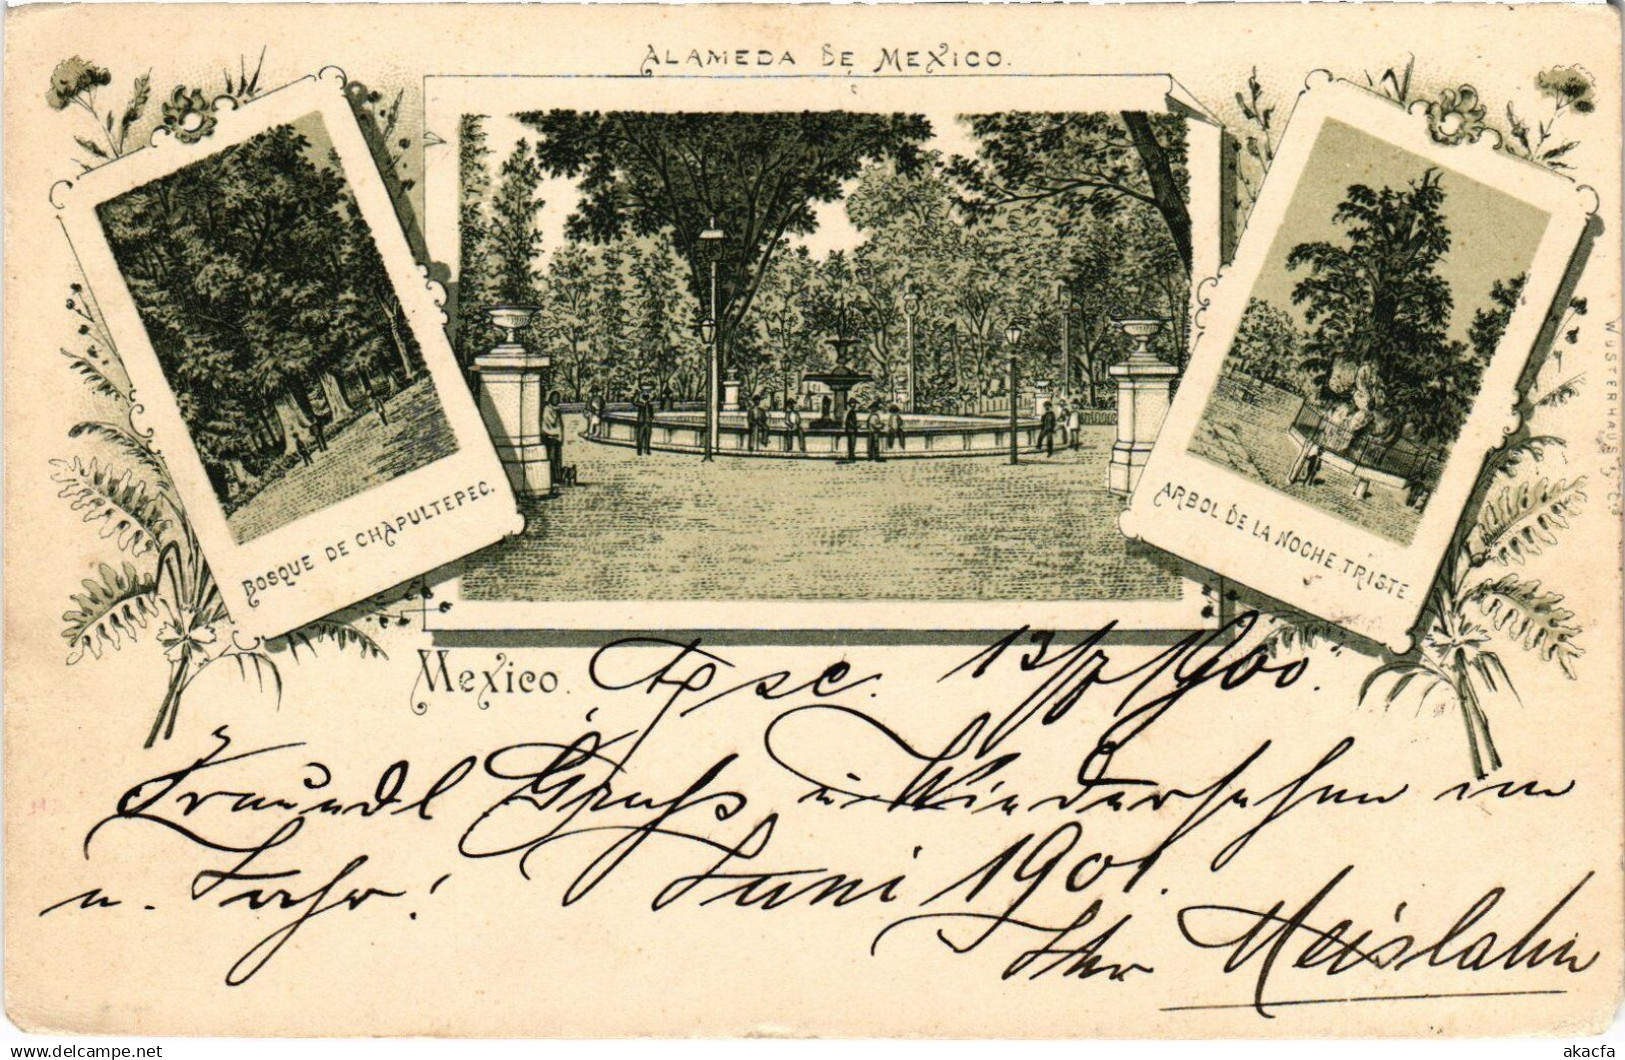 ALAMEDA DE MEXICO.
BOSQUE DE CHAPULTEPEC.
ARBOL DE LA NOCHE TRISTE
WÜSTERHAUS
Mexico. 13/7 1900.
Freundl Gruß u Wiedersehen im
u. Juni 1901.
Ihr Meislahn
akacfa